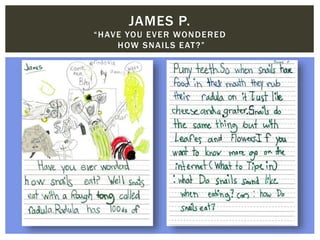 JAMES P.
“HAVE YOU EVER WONDERED
HOW SNAILS EAT?”
James
Come
back
Have you ever wonderd
how snails eat? Well snails
eat with a Rough tong called
radula. Radula has 100s of
Puny teeth. So when snails have
food in their mouth they rub
their radula on it Just like
cheese and a grater. Snails do
the same thing but with
Leafes and Flowers. If you
want to know more go on the
Internet (What to Tipe in)
: what Do snails sound like
when eating? (or) : how Do
snails eat?